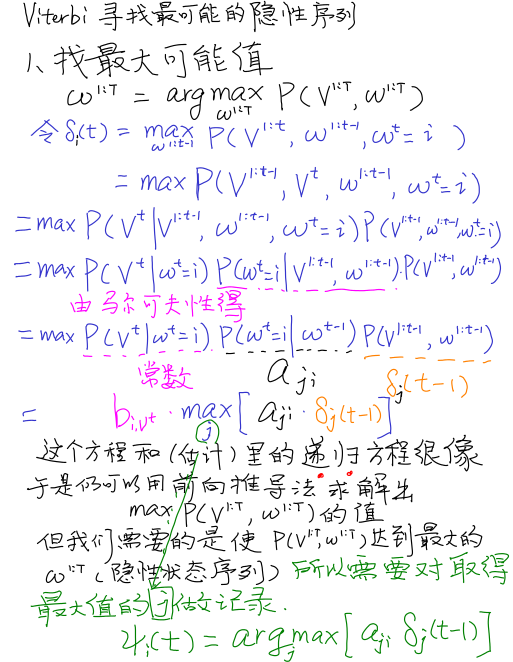 Viterbi 寻找最可能的隐性序列
1、找最大可能值
ω^{1:T} = argmax_{ω^{1:T}} P(V^{1:T}, ω^{1:T})
令 δ_i(t) = max_{ω^{1:t-1}} P(V^{1:t}, ω^{1:t-1}, ω^t = i )
= max P(V^{1:t-1}, V^t, ω^{1:t-1}, ω^t = i)
= max P(V^t | V^{1:t-1}, ω^{1:t-1}, ω^t = i) P(V^{1:t-1}, ω^{1:t-1}, ω^t = i)
= max P(V^t | ω^t = i) P(ω^t = i | V^{1:t-1}, ω^{1:t-1}) · P(V^{1:t-1}, ω^{1:t-1})
由马尔可夫性得
= max P(V^t | ω^t = i) P(ω^t = i | ω^{t-1}) P(V^{1:t-1}, ω^{1:t-1})
常数 a_{ji} δ_j(t-1)
= b_{i,v^t} · max_j [ a_{ji} · δ_j(t-1) ]
这个方程和(估计)里的递归方程很像
于是仍可以用前向推导法求解出
max P(V^{1:T}, ω^{1:T}) 的值
但我们需要的是使 P(V^{1:T}, ω^{1:T}) 达到最大的
ω^{1:T} (隐性状态序列) 所以需要对取得
最大值的 j 做记录.
ψ_i(t) = argmax_j [ a_{ji} δ_j(t-1) ]